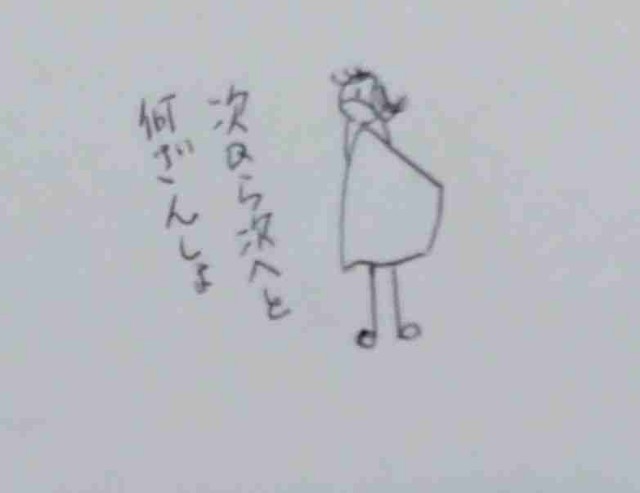 次から次へと
何ざんしょ